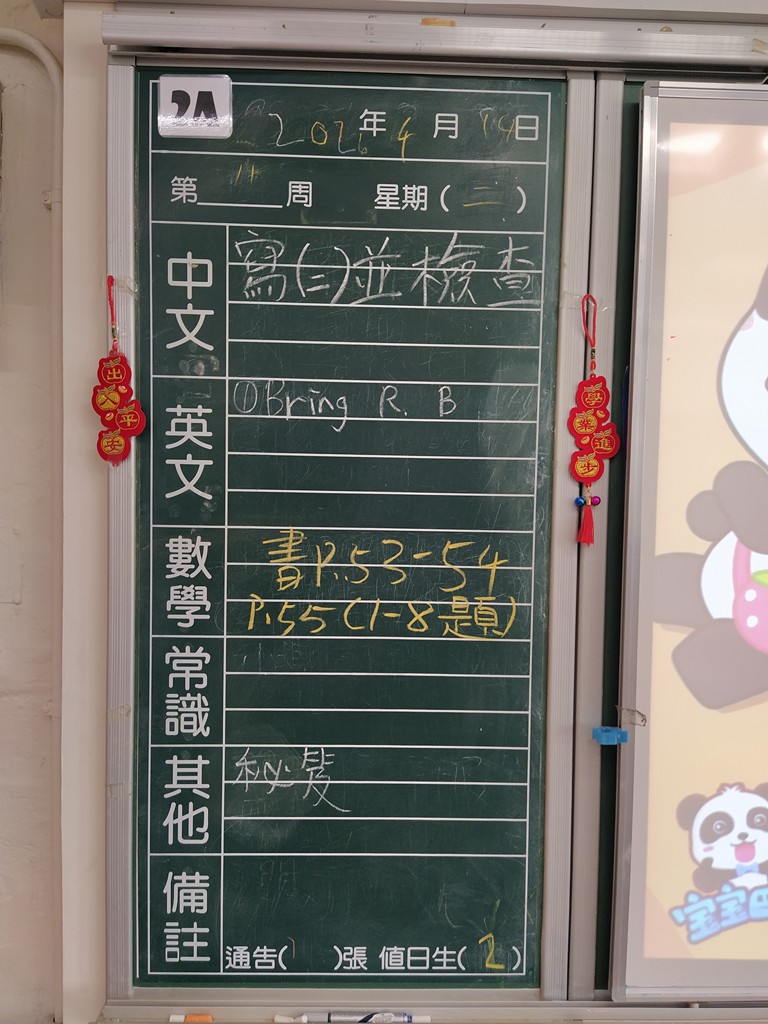 2A
年4月14日
第11周 星期(二)
中文
寫(二)並檢查
英文
①Bring R. B
數學
書P.53-54
P.55(1-8題)
常識
其他
備註
通告( )張 值日生(2)
出入平安
學業進步
宝宝巴